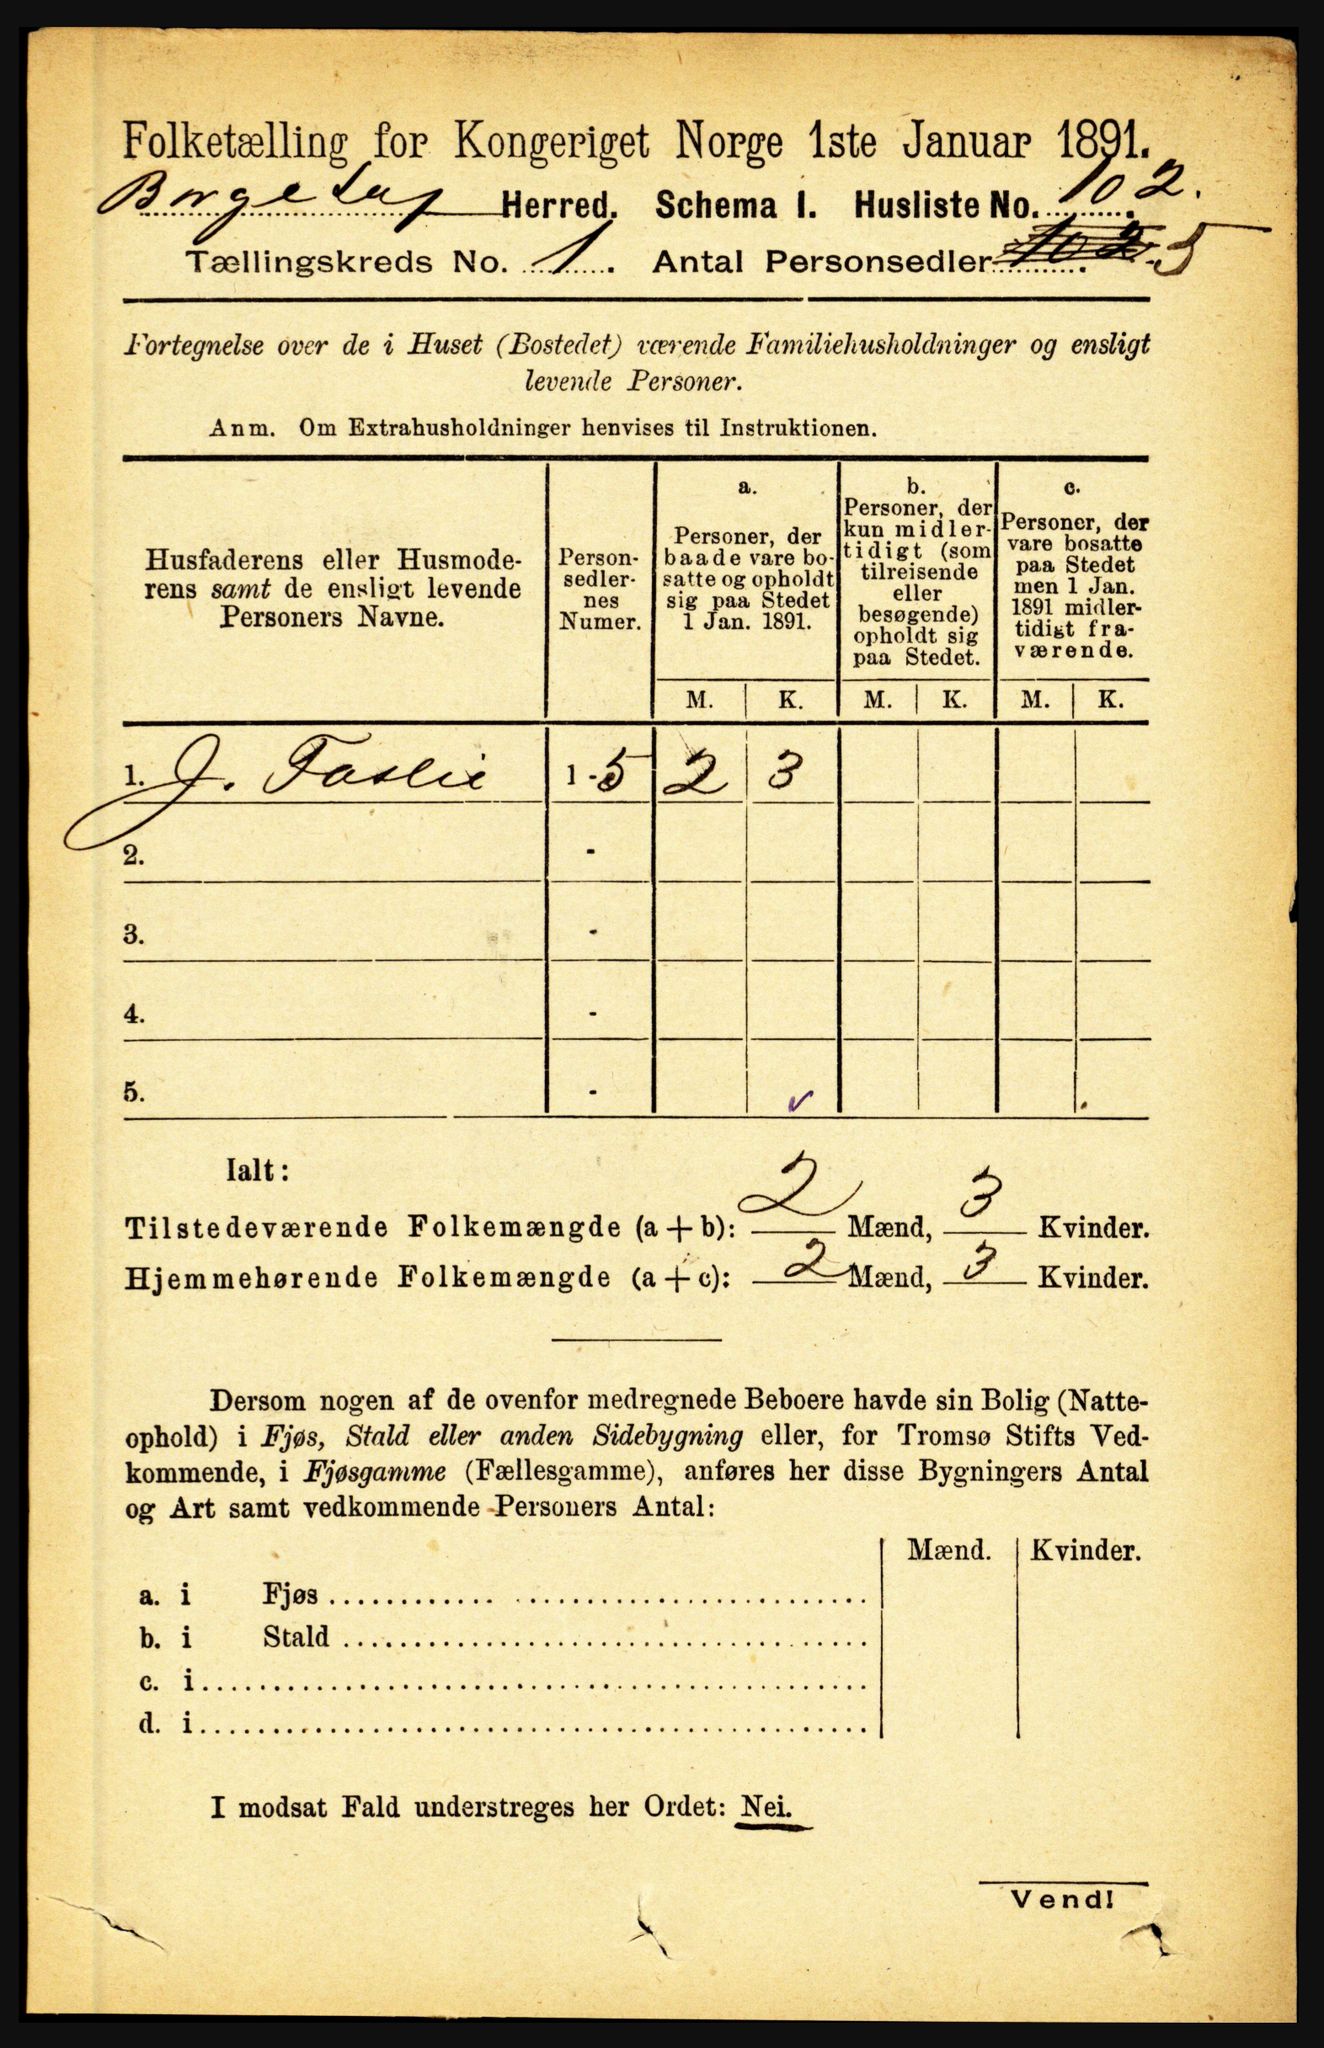 Folketælling for Kongeriget Norge 1ste Januar 1891.
Borge Herred. Schema I. Husliste No. 102.
Tællingskreds No. 1. Antal Personsedler 102. 5
Fortegnelse over de i Huset (Bostedet) værende Familiehusholdninger og ensligt
levende Personer.
Anm. Om Extrahusholdninger henvises til Instruktionen.
Husfaderens eller Husmode-
rens samt de ensligt levende
Personers Navne.
Person-
sedler-
nes
Numer.
a.
Personer, der
baade vare bo-
satte og opholdt
sig paa Stedet
1 Jan. 1891.
b.
Personer, der
kun midler-
tidigt (som
tilreisende
eller
besøgende)
opholdt sig
paa Stedet.
c.
Personer, der
vare bosatte
paa Stedet
men 1 Jan.
1891 midler-
tidigt fra-
værende.
M. K. M. K. M. K.
1. J. Faslie 1-5 2 3
2. -
3. -
4. -
5. -
Ialt:
Tilstedeværende Folkemængde (a + b): 2 Mænd, 3 Kvinder.
Hjemmehørende Folkemængde (a + c): 2 Mænd, 3 Kvinder.
Dersom nogen af de ovenfor medregnede Beboere havde sin Bolig (Natte-
ophold) i Fjøs, Stald eller anden Sidebygning eller, for Tromsø Stifts Ved-
kommende, i Fjøsgamme (Fællesgamme), anføres her disse Bygningers Antal
og Art samt vedkommende Personers Antal:
Mænd. Kvinder.
a. i Fjøs
b. i Stald
c. i
d. i
I modsat Fald understreges her Ordet: Nei.
Vend!